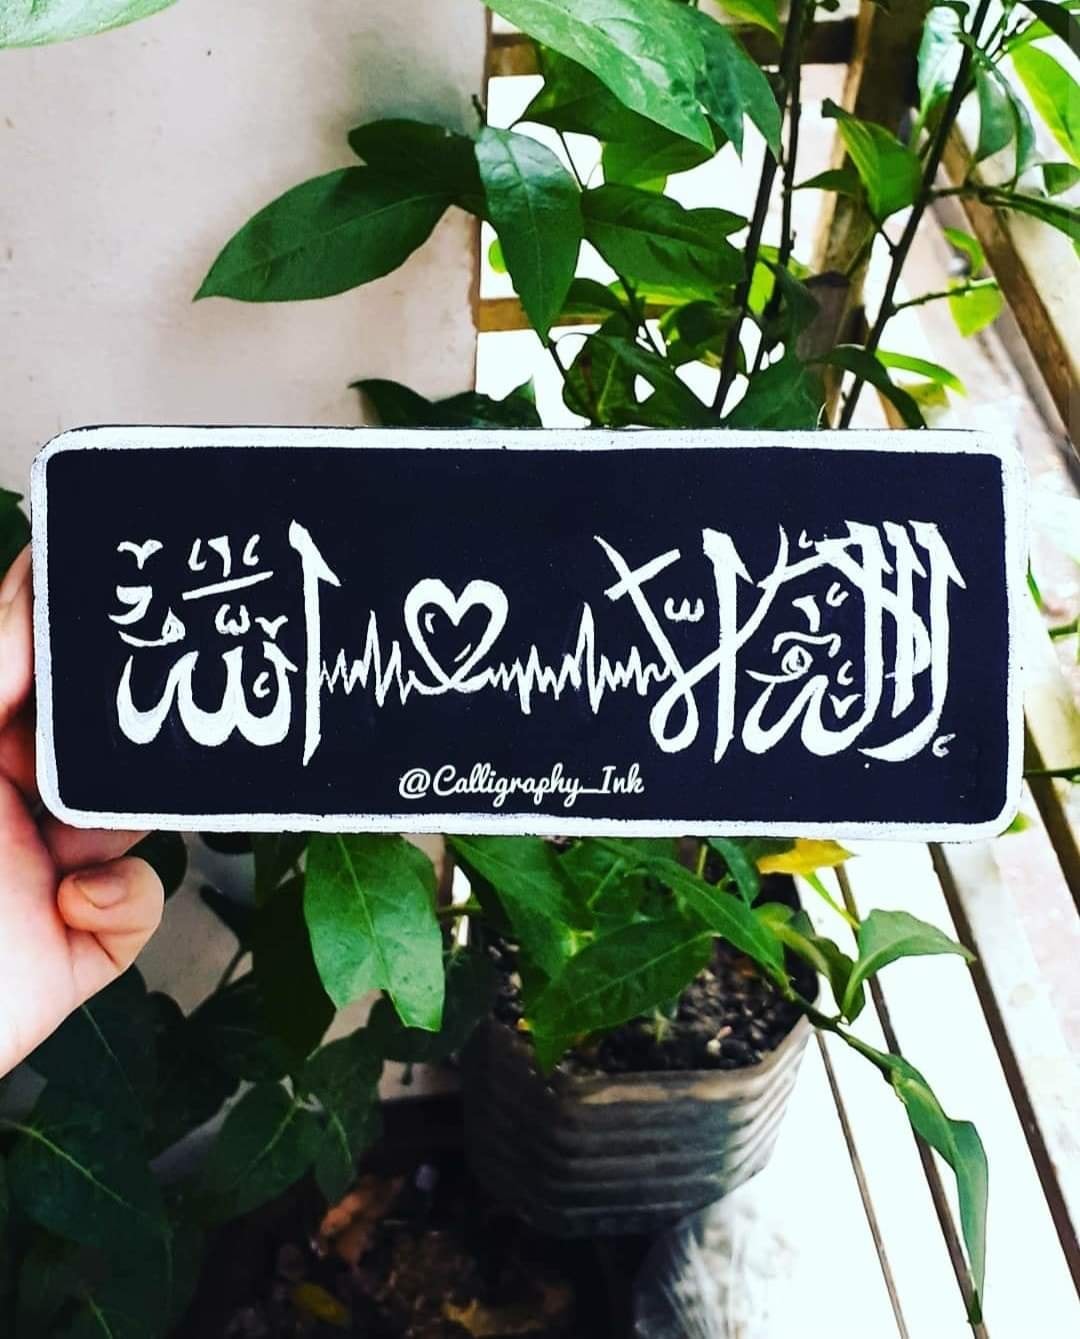 لا إله إلا الله
@Calligraphy_Ink